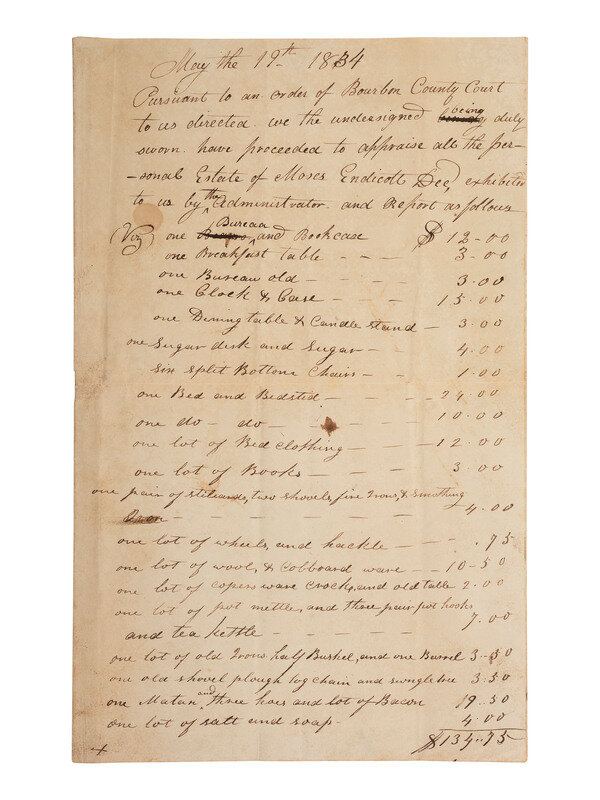 May the 19th 1834
Pursuant to an order of Bourbon County Court
to us directed we the undersigned being duly
sworn have proceeded to appraise all the per-
-sonal Estate of Moses Endicott Decd, exhibited
to us by the Administrator and Report as follows
(Viz) one Bureau and Bookcase $12-00
one Breakfast table - - - 3-00
one Bureau old - - - - 3.00
one Clock & Case - - - - 15.00
one Dining table & Candle stand - 3.00
one Sugar desk and Sugar - - 4.00
six split Bottom Chairs - - 1.00
one Bed and Bedsted - - - 24.00
one do - do - - - - 10.00
one lot of Bed clothing - - - 12.00
one lot of Books - - - - 3.00
one pair of stiliards, two shovels, fire Irons, & Smothing
Iron - - - - - - - 4.00
one lot of wheels, and hackle - - - .75
one lot of wool, & Cobboard ware - - 10-50
one lot of copers ware Crocks, and old table 2.00
one lot of pot mettle, and three pair pot hooks
and tea kettle - - - - - 7.00
one lot of old Irons half Bushel, and one Barrel 3-50
one old shovel plough log chain and swingletree 3.50
one Matax, and three hoes and lot of Bacon 19.50
one lot of salt and soap - 4.00
$134.75